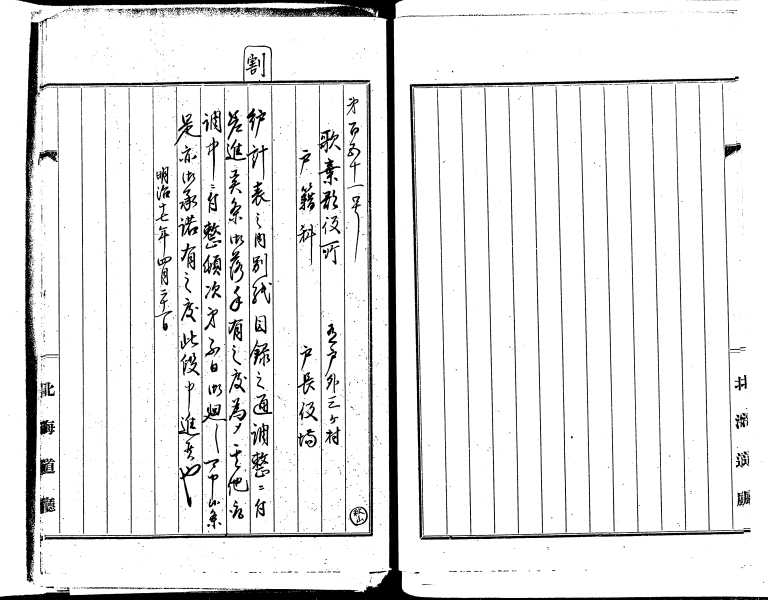 割
第百五十一号
歌棄郡役所
戸籍科
戸外三ケ村
戸長役場
計表之内別紙目録之通調整ニ付
差進候条御落手有之度為〆其他
調中ニ付整頓次第不日御廻シ可申候条
是亦御承諾有之度此段申進候也
明治十七年四月二十一日
北海道廳
北海道廳